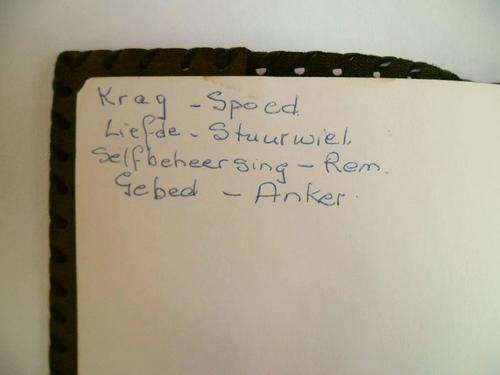 Krag - Spoed.
Liefde - Stuurwiel.
Selfbeheersing - Rem.
Gebed - Anker.